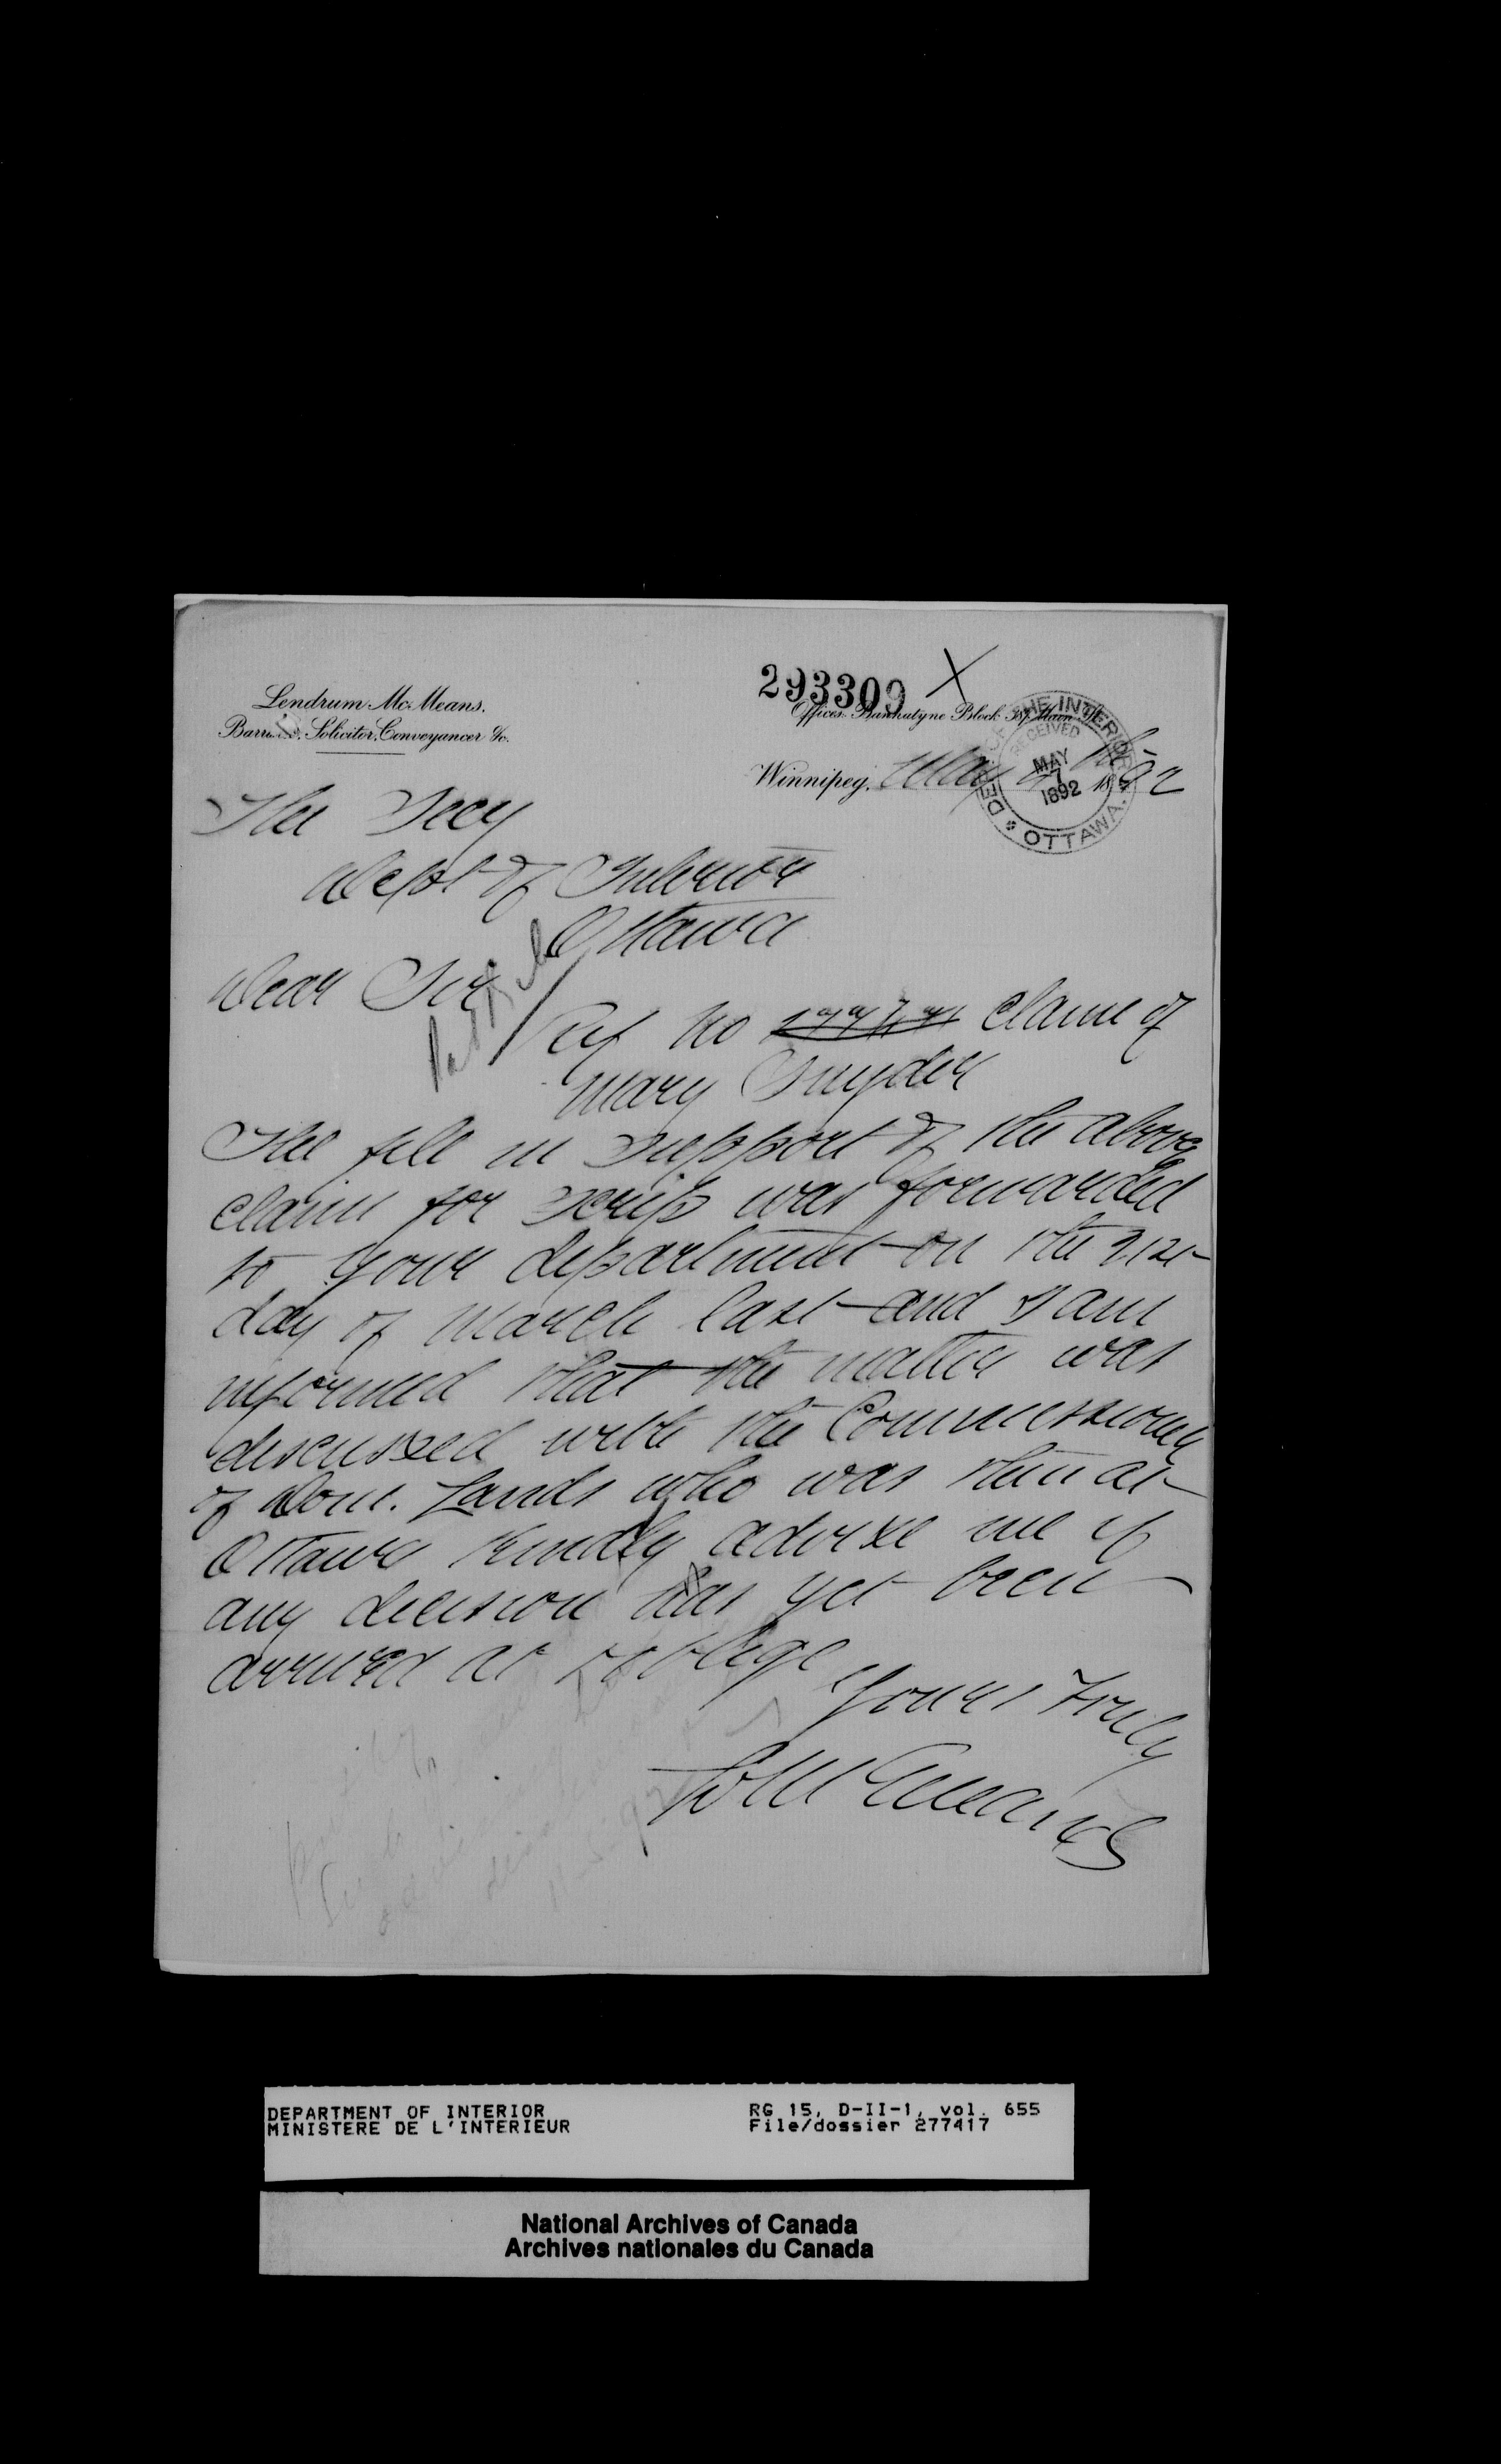 293309 X
Lendrum Mc.Means.
Offices: Bannatyne Block Main
Solicitor, Conveyancer &c.
DEPT. OF THE INTERIOR
RECEIVED
MAY
7
1892
OTTAWA.
Winnipeg, May 1892
The Secy
Dept of Interior
Ottawa
Dear Sir
Ref No claim of
Mary Snyder
The file in support of the above
claim for scrip was forwarded
to your department on the 21st
day of March last and I am
informed that the matter was
discussed with the Commissioner
of Dom. Lands who was then at
Ottawa Kindly advise me if
any decision has yet been
arrived at & oblige
Yours Truly
L McMeans
DEPARTMENT OF INTERIOR
MINISTERE DE L'INTERIEUR
RG 15, D-II-1, vol. 655
File/dossier 277417
National Archives of Canada
Archives nationales du Canada